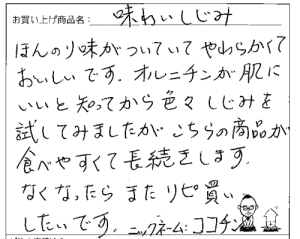 お買い上げ商品名：味わいしじみ
ほんのり味がついていて やわらかくて
おいしいです。オルニチンが肌に
いいと知ってから色々しじみを
試してみましたが こちらの商品が
食べやすくて長続きします。
なくなったら また リピ買い
したいです。ニックネーム：ココチン